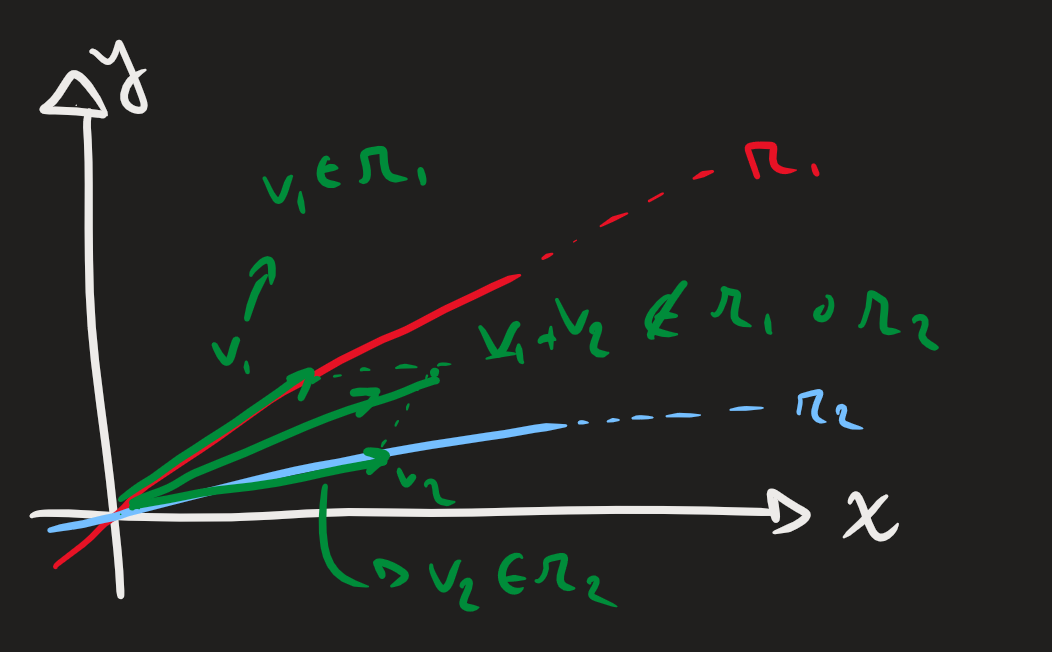 y
v₁ ∈ r₁
r₁
v₁
v₁+v₂ ∉ r₁ o r₂
r₂
v₂
x
v₂ ∈ r₂